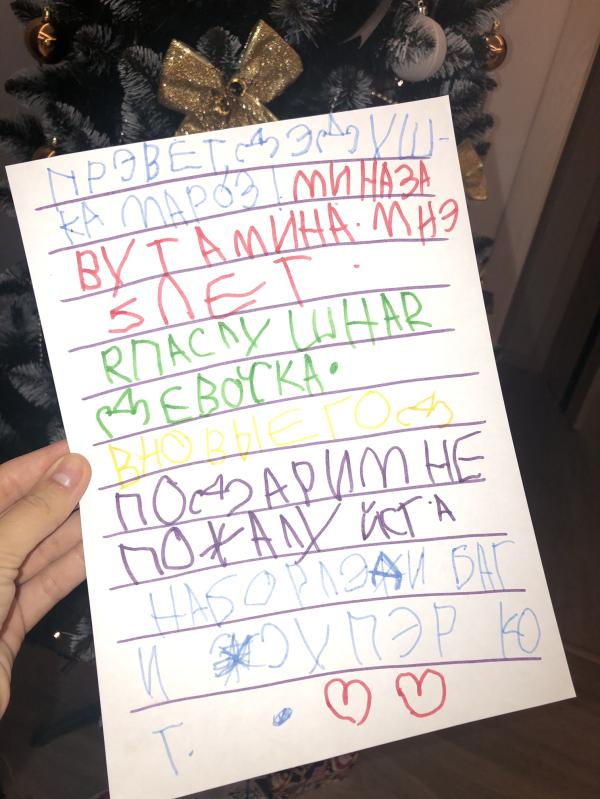 ПРЭВЕТ, ДЭДУШ-
КА МАРОЗ! МИНАЗА
ВУТ АМИНА. МНЭ
5 ЛЕТ.
ЯПАСЛУШНАЯ
ДЕВОЧКА.
ВНОВЫЕГОД
ПОДАРИМНЕ
ПОЖАЛУЙСТА
НАБОР ЛЭДИ БАГ
И СУПЭР КО
Т.